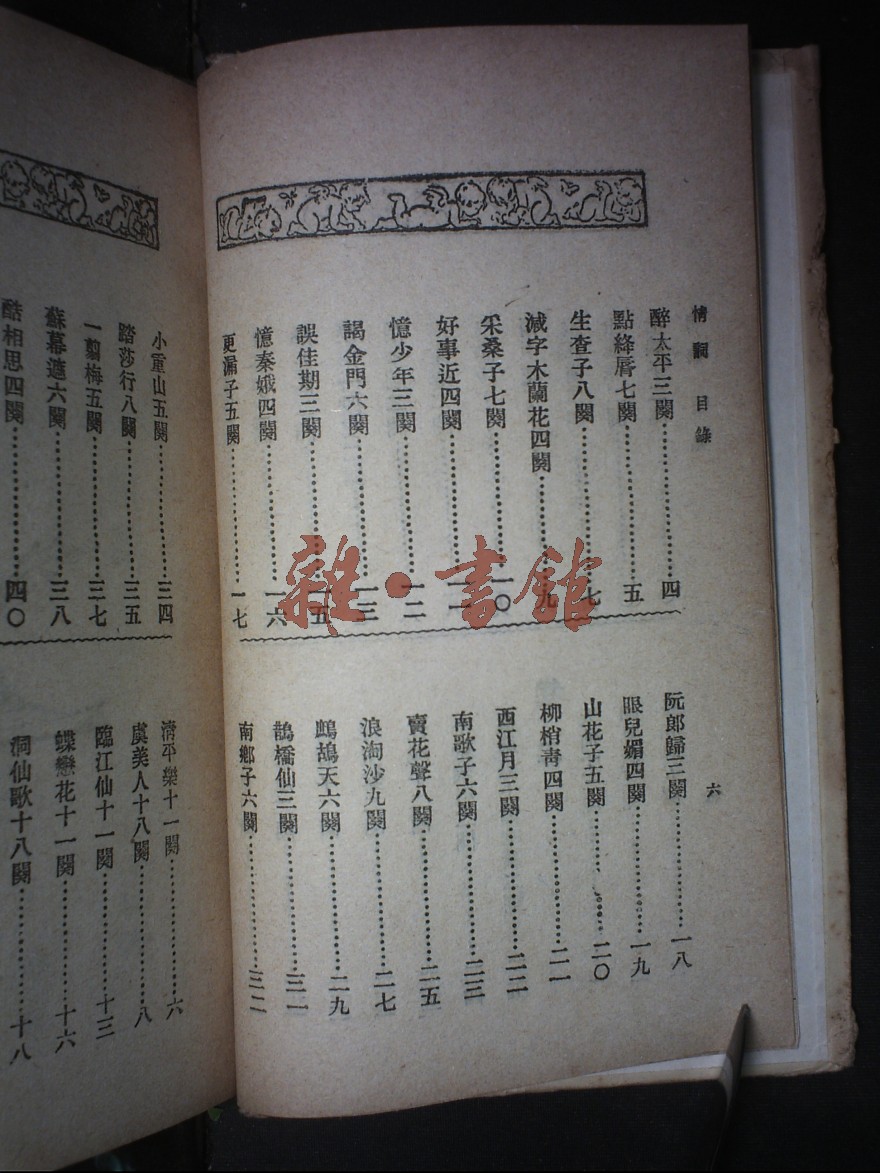 情詞 目錄
六
醉太平三闋……四
點絳唇七闋……五
生查子八闋……七
減字木蘭花四闋……九
采桑子七闋……一〇
好事近四闋……一一
憶少年三闋……一二
謁金門六闋……一三
誤佳期三闋……一五
憶秦娥四闋……一六
更漏子五闋……一七
阮郎歸三闋……一八
眼兒媚四闋……一九
山花子五闋……二〇
柳梢青四闋……二一
西江月三闋……二二
南歌子六闋……二三
賣花聲八闋……二五
浪淘沙九闋……二七
鷓鴣天六闋……二九
鵲橋仙三闋……三一
南鄉子六闋……三二
小重山五闋……三四
踏莎行八闋……三五
一翦梅五闋……三七
蘇幕遮六闋……三八
酷相思四闋……四〇
清平樂十一闋……六
虞美人十八闋……八
臨江仙十一闋……十三
蝶戀花十一闋……十六
洞仙歌十八闋……十八
雜·書館